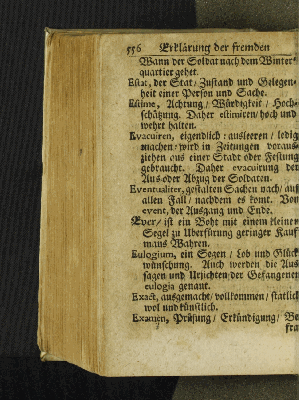 556 Erklärung der fremden
Wann der Soldat nach dem Winter-
quartier gehet.
Estat, der Stat / Zustand und Gelegen-
heit einer Person und Sache.
Estime, Achtung / Würdigkeit / Hoch-
schätzung. Daher estimiren / hoch und
wehrt halten.
Evacuiren, eigendlich: ausleeren / ledig
machen: wird in Zeitungen voraus
ziehen aus einer Stadt oder Festung
gebraucht. Daher evacuirung der
Aus- oder Abzug der Soldaten.
Eventualiter, gestalten Sachen nach / auf
allen Fall / nachdem es komt. Von
event, der Ausgang und Ende.
Ever / ist ein Boht mit einem kleinen
Segel zu Uberfürung geringer Kauf
mans Wahren.
Eulogium, ein Segen / Lob und Glück
wünschung. Auch werden die Aus
sagen und Urjichten der Gefangenen
eulogia genant.
Exact, ausgemacht / vollkommen / statlich
wol und künstlich.
Examen, Prüfung / Erkündigung / Be
fra